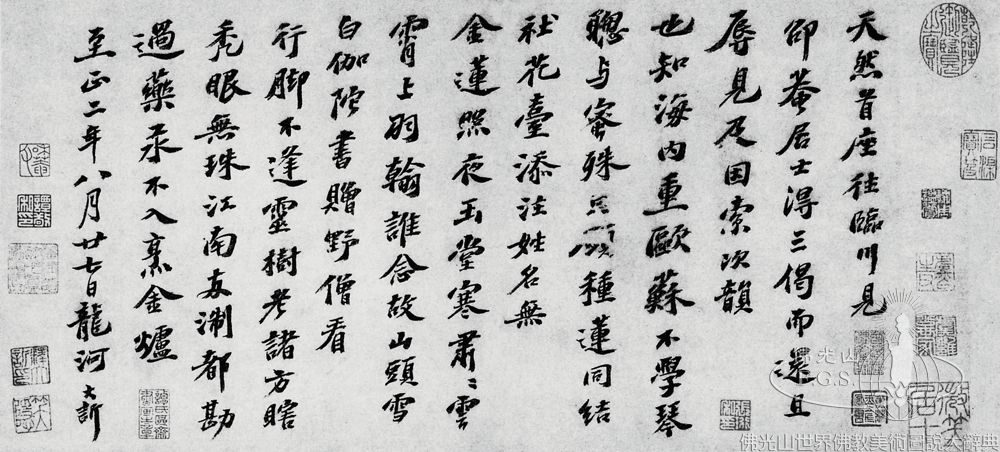 天然首座往臨川見
邵菴居士得三偈而還且
辱見及因索次韻
也知海內重歐蘇不學琴
聰与蜜殊只願種蓮同結
社花臺添注姓名無
金蓮照夜玉堂寒肅〻雲
霄上羽翰誰念故山頭雪
白伽陀書贈野僧看
行脚不逢靈樹老諸方瞎
禿眼無珠江南两淛都勘
過藥汞不入烹金爐
至正二年八月廿七日龍河大訢
佛光山
F.G.S.
佛光山世界佛教美術圖說大辭典